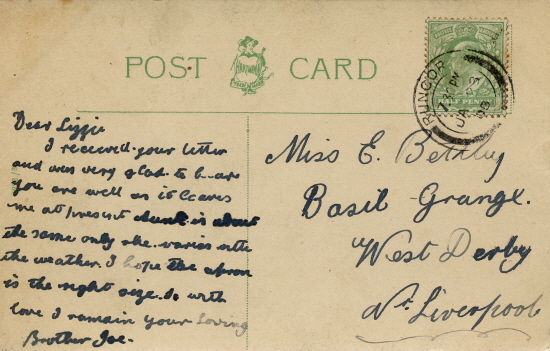 POST CARD
RUNCOR
JA 3
08
HALF PENNY
Dear Lizzie
I received your letter
and was very glad to hear
you are well as it leaves
me at present Aunt is about
the same only she varies with
the weather. I hope the apron
is the right size. So with
love I remain your loving
Brother Joe.
Miss E.
Basil Grange.
West Derby
Nr. Liverpool